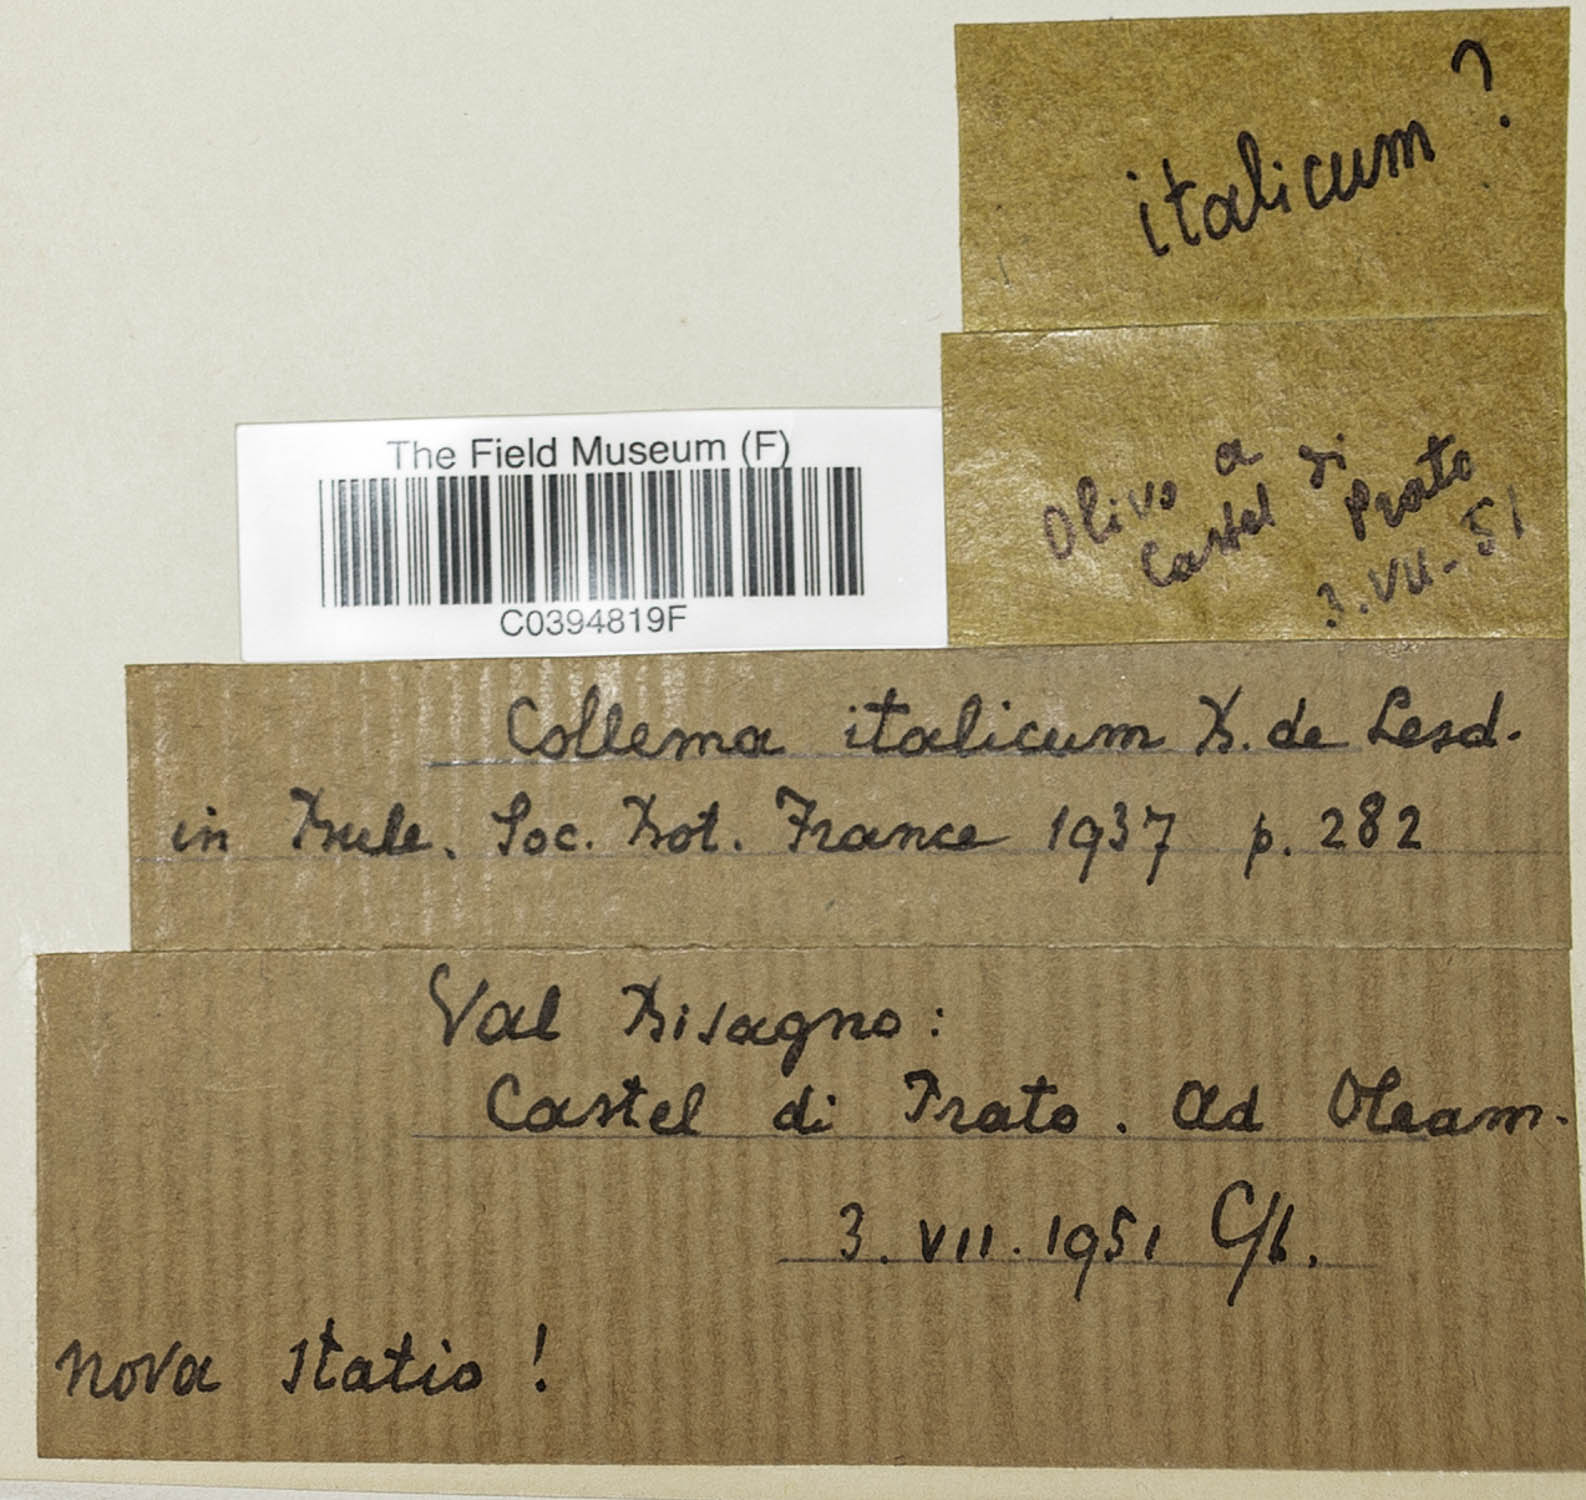 italicum ?
The Field Museum (F)
C0394819F
Olivo a
Castel di
Prato
3.VII.51
Collema italicum B. de Lesd.
in Bull. Soc. Bot. France 1937 p. 282
Val Bisagno:
Castel di Prato. Ad Oleam.
3. VII. 1951
nova statio !